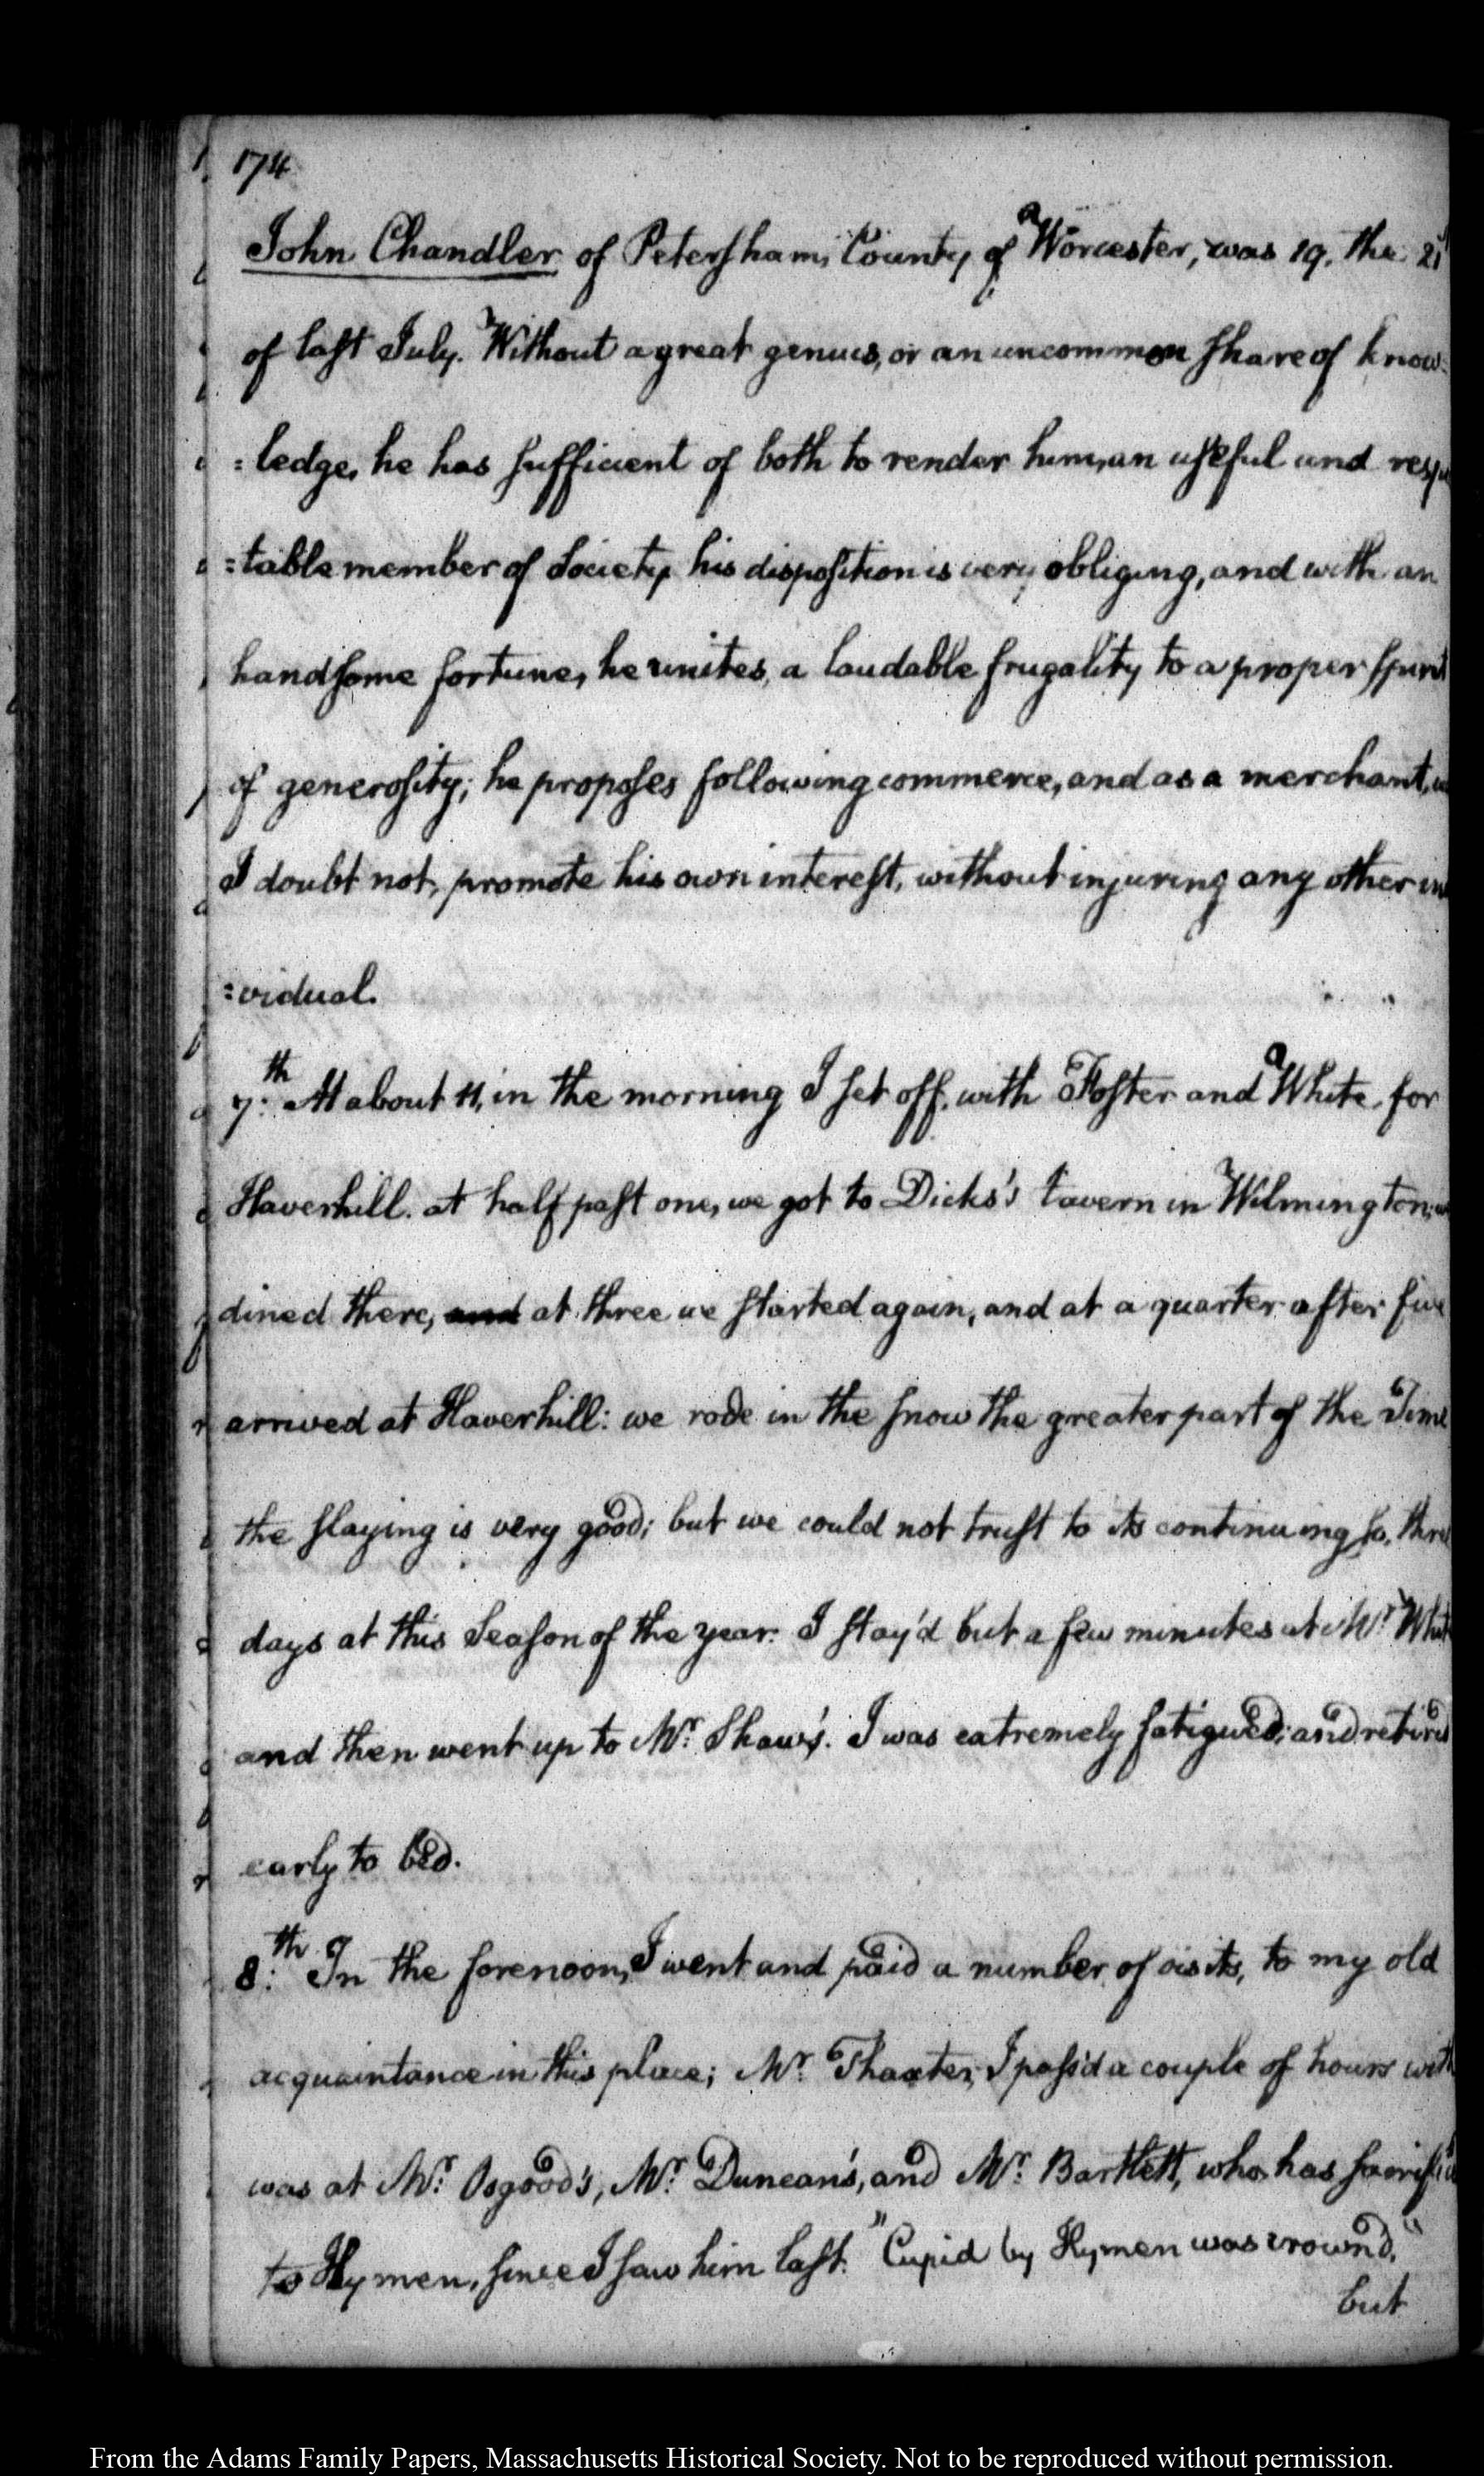 174
John Chandler of Petersham, County of Worcester, was 19. the 21
of last July. Without a great genius, or an uncommon share of know=
=ledge, he has sufficient of both to render him, an useful and
=table member of Society. his disposition is very obliging, and with an
handsome fortune, he unites, a laudable frugality to a proper spirit
of generosity; he proposes following commerce, and as a merchant,
I doubt not, promote his own interest, without injuring any other
=vidual.
7:th At about 11, in the morning I set off, with Foster and White, for
Haverhill. at half past one, we got to Dicks's tavern in Wilmington,
dined there, and at three we started again, and at a quarter after five
arrived at Haverhill: we rode in the snow the greater part of the Time
the slaying is very good; but we could not trust to its continuing so, three
days at this Season of the year. I stay'd but a few minutes at Mr. White
and then went up to Mr. Shaw's. I was extremely fatigued; and retired
early to bed.
8:th In the forenoon, I went and paid a number of visits, to my old
acquaintance in this place; Mr. Thaxter, I pass'd a couple of hours with
was at Mr. Osgood's, Mr. Duncan's, and Mr. Bartlett, who has
to Hymen, since I saw him last. "Cupid by Hymen was crown'd,"
but
From the Adams Family Papers, Massachusetts Historical Society. Not to be reproduced without permission.